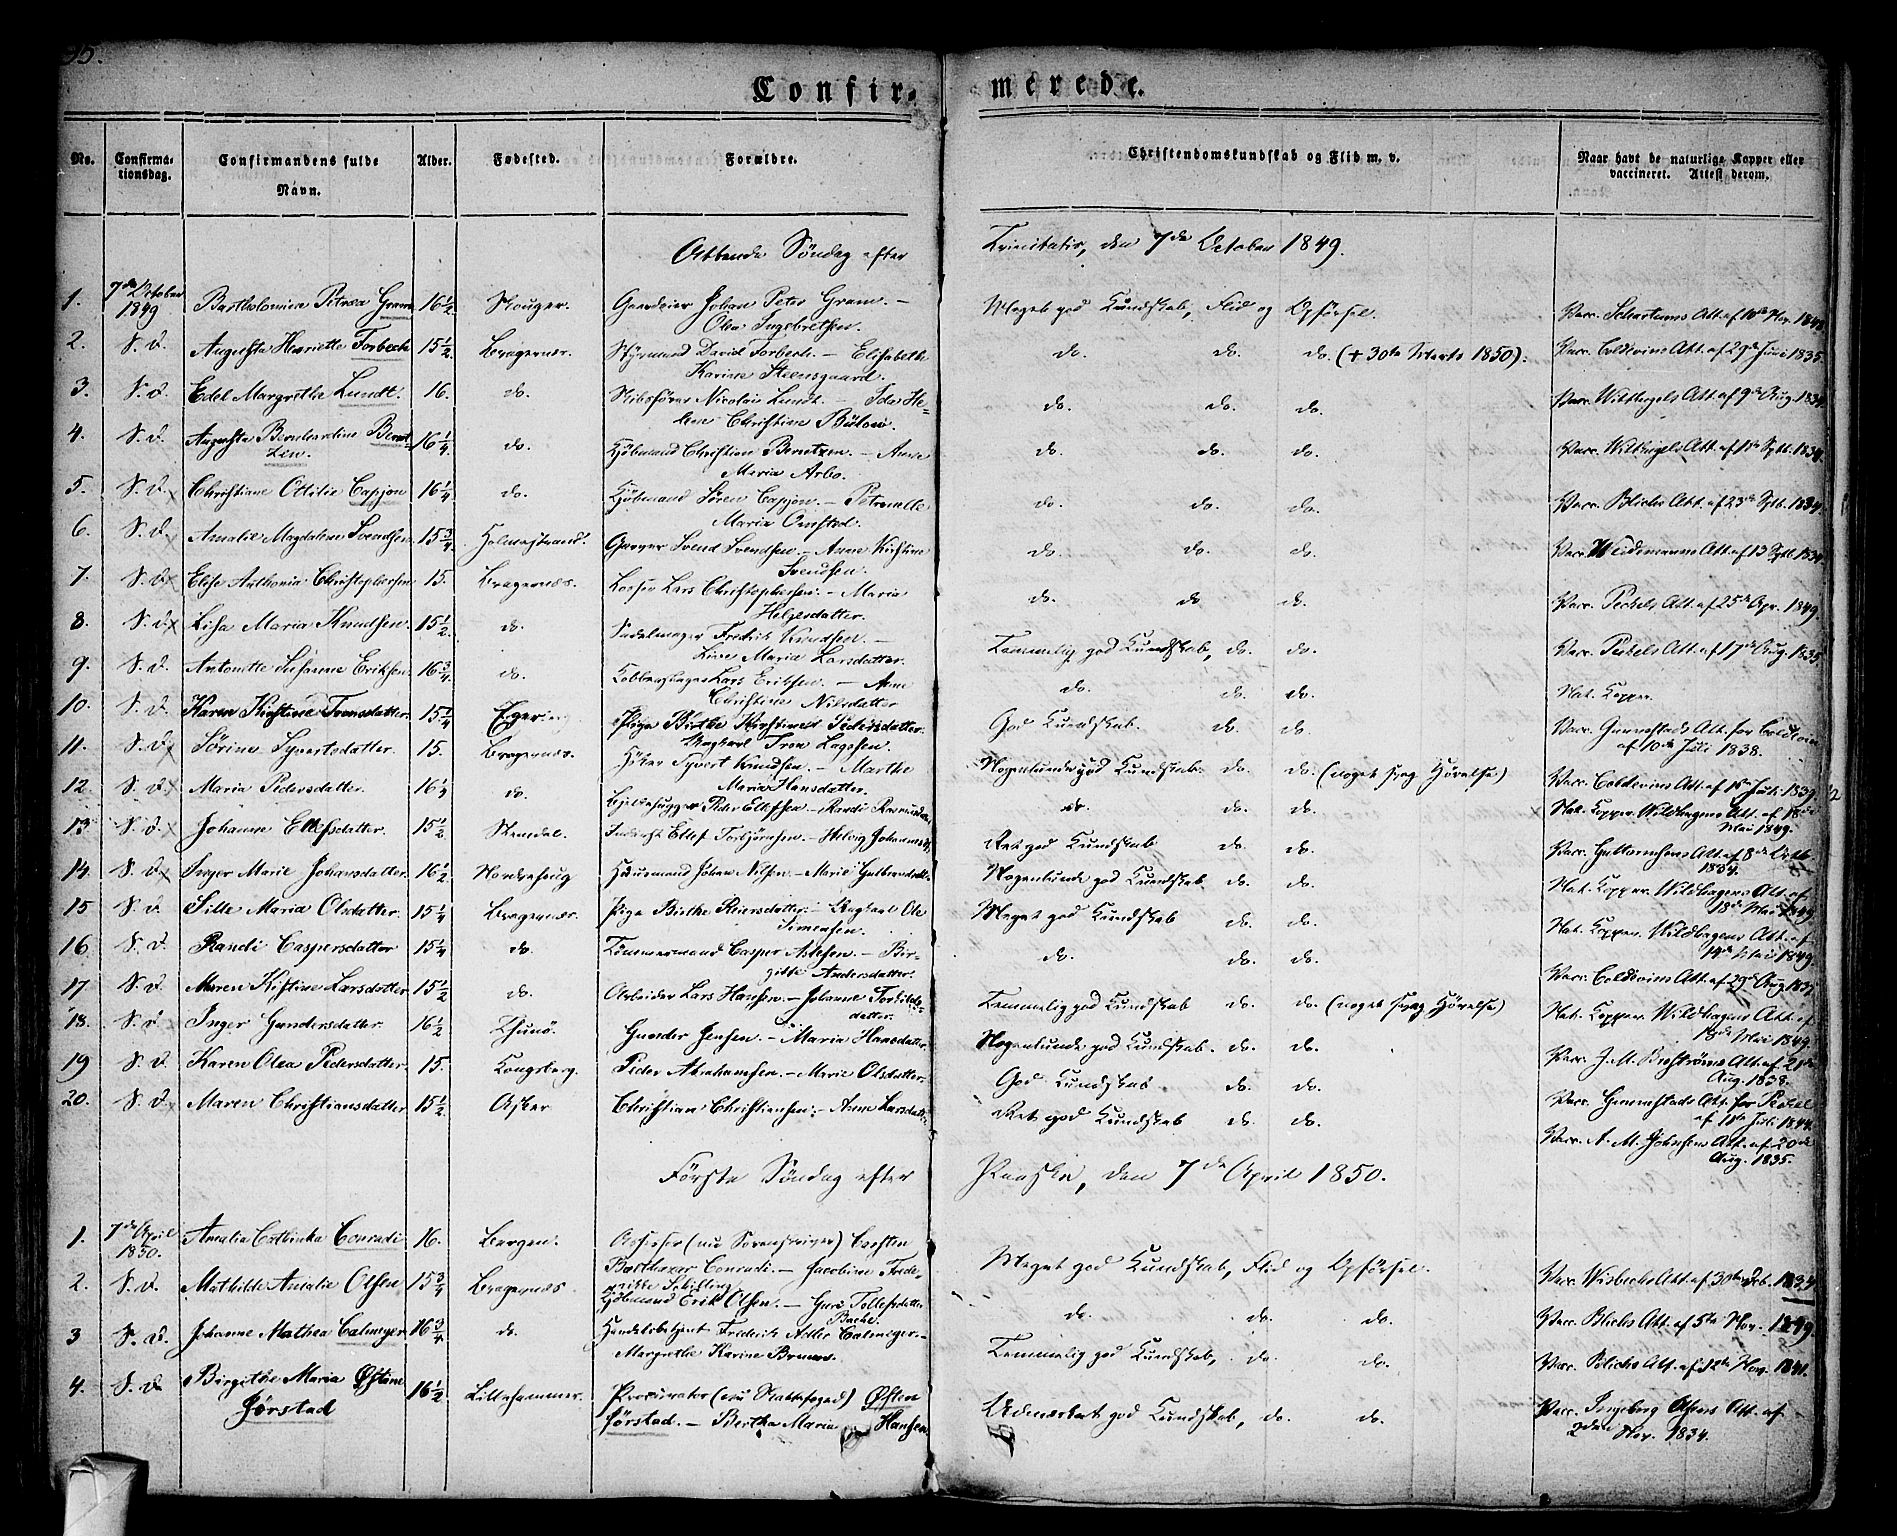 Confir- merede.
No. Confirma-tionsdag. Confirmandens fulde Navn. Alder. Fødested. Forældre. Christendomskundskab og Flid m. v. Naar havt de naturlige Kopper eller vaccineret. Attest derom.
Ottende Søndag efter Trinitatis, den 7de October 1849.
1. 7de October 1849 Bartholomine Petrea Gram 16 1/2 Skouger. Gaardeier Johan Peter Gram. - Olea Ingebretsen. Meget god Kundskab, Flid og Opførsel. Vacc. Att. af 10de Nov. 1848
2. S. D. Augusta Henriette Torbech 15 1/2 Bragernæs. Styrmand David Torbech. - Elisabeth Karine Steensgaard. do. do. do. (+ 30te Marts 1850). Vacc. Coldevins Att. af 29de Juni 1835.
3. S. D. Edel Margrethe Lundt. 16. do. Skibsfører Nicolai Lundt. - Ida Helene Christine Bülow. do. do. do. Vacc. Att. af 9de Aug. 1834.
4. S. D. Augusta Bernhardine Berntzen. 16 1/4 do. Kjøbmand Christian Berntzen. - Anne Maria Arbo. do. do. do. Vacc. Att. af 1ste Sptb. 1834.
5. S. D. Christiane Ottilie Capjon 16 1/4 do. Kjøbmand Søren Capjon. - Petronelle Maria Omsted. do. do. do. Vacc. Blichs Att. af 23de Sptb. 1834.
6. S. D. Amalie Magdalene Svendsen 15 3/4 Holmestrand. Garver Svend Svendsen. - Anne Kirstine Svendsen. do. do. do. Vacc. Weidemanns Att. af 13 Sptb. 1834.
7. S. D. Elise Anthonia Christophersen 15. Bragernæs. Lodser Lars Christophersen. - Maria Helgesdatter. do. do. do. Vacc. Pechels Att. af 25de Apr. 1849.
8. S. D. Lisa Maria Knudsen. 15 1/2 do. Sadelmager Fredrik Knudsen. - Live Maria Larsdatter. Temmelig god Kundskab, do. do. Vacc. Pechels Att. af 17de Aug. 1835.
9. S. D. Antonette Susanne Eriksen. 16 3/4 do. Kobberslager Lars Eriksen. - Anne Christine Nilsdatter. do. do. do. Nat. Kopper.
10. S. D. Karen Kirstine Tronsdatter. 15 1/4 Eger. Pige Birthe Kirstine Pedersdatter. Ungkarl Tron Lagesen. God Kundskab. do. do. Vacc. Gunnestads Att. for Coldevin af 10de Juli 1838.
11. S. D. Sørine Syvertsdatter. 15. Bragernæs. Høker Syvert Knudsen. - Marthe Maria Hansdatter. Nogenlunde god Kundskab. do. do. (noget svag Hørelse) Vacc. Coldevins Att. af 1ste Juli 1839.
12. S. D. Maria Pedersdatter. 16 1/4 do. Peder Ellefsen. - Randi do. do. do. Nat. Kopper. Wildhagens Att. af 18de Mai 1849.
13. S. D. Johanne Ellefsdatter. 15 1/2 Stendal. Inderst Ellef Torbjørnsen. - Helvig Ret god Kundskab do. do. Vacc. Guttormsens Att. af 8de Octb. 1834.
14. S. D. Inger Marie Johansdatter. 16 1/2 Norderhaug Huusmand Johan Nilsen. - Marie Nogenlunde god Kundskab. do. do. Nat. Kopper. Wildhagens Att. af 18de Mai 1849.
15 S. D. Sille Maria Olsdatter. 15 1/4 Bragernæs. Pige Birthe Reiersdatter. - Ungkarl Ole Simensen. Meget god Kundskab do. do. Nat. Kopper. Wildhagens Att. af 14de Mai 1849.
16 S. D. Randi Caspersdatter 15 1/4 do. Tømmermand Casper Aslesen. - Birgitte Andersdatter. do. do. do. Vacc. Coldevins Att. af 29de Aug. 1837
17 S. D. Maren Kistine Larsdatter 15 1/2 do. Arbeider Lars Hansen. - Johanne Torkildsdatter. Temmelig god Kundskab do. do. (noget svag Hørelse) Nat. Kopper. Wildhagens Att. af 18de Mai 1849.
18. S. D. Inger Gundersdatter. 16 1/2 Thunø. Gunder Jensen. - Maria Hansdatter. Nogenlunde god Kundskab. do. do. Vacc. J. M. Att. af 21de Aug. 1838.
19 S. D. Karen Olea Pedersdatter 15. Kongsberg. Peder Abrahamsen. - Marie Olsdatter. God Kundskab. do. do. Vacc. Gunnestads Att. for Pechel af 11te Juli 1844.
20. S. D. Maren Christiansdatter 15 1/2 Asker Christian Christiansen. - Anne Larsdatter. Ret god Kundskab do. do. Vacc. A. M. Johnsens Att. af 20de Aug. 1835.
Første Søndag efter Paaske, den 7de April 1850.
1. 7de April 1850. Amalia Cathinka Conradi 16. Bergen. Assessor (nu Sorenskriver) Carsten Balthazar Conradi. - Jacobine Frederikke Schilling Meget god Kundskab, Flid og Opførsel. Vacc. Wisbechs Att. af 30te Octb. 1834
2. S. D. Mathilde Amalie Olsen 15 3/4 Bragernæs Kjøbmand Erik Olsen. - Guro Tollefsdatter Bache. do. do. do. Vacc. Blichs Att. af 5te Nov. 1849.
3 S. D. Johanne Mathea Calmeyer 16 3/4 do. Handelsbetjent Frederik Adler Calmeyer. - Margrethe Karine Temmelig god Kundskab, do. do. Vacc. Blichs Att. af 12te Nov. 1841.
4. S. D. Birgethe Maria Østine Jørstad 16 1/2 Lillehammer. Procurator (nu Statsfoged) Østen Jørstad. - Bertha Maria Hansen Udmærket god Kundskab, do. do. Vacc. Ingeborg Olsens Att. af 2den Nov. 1834.